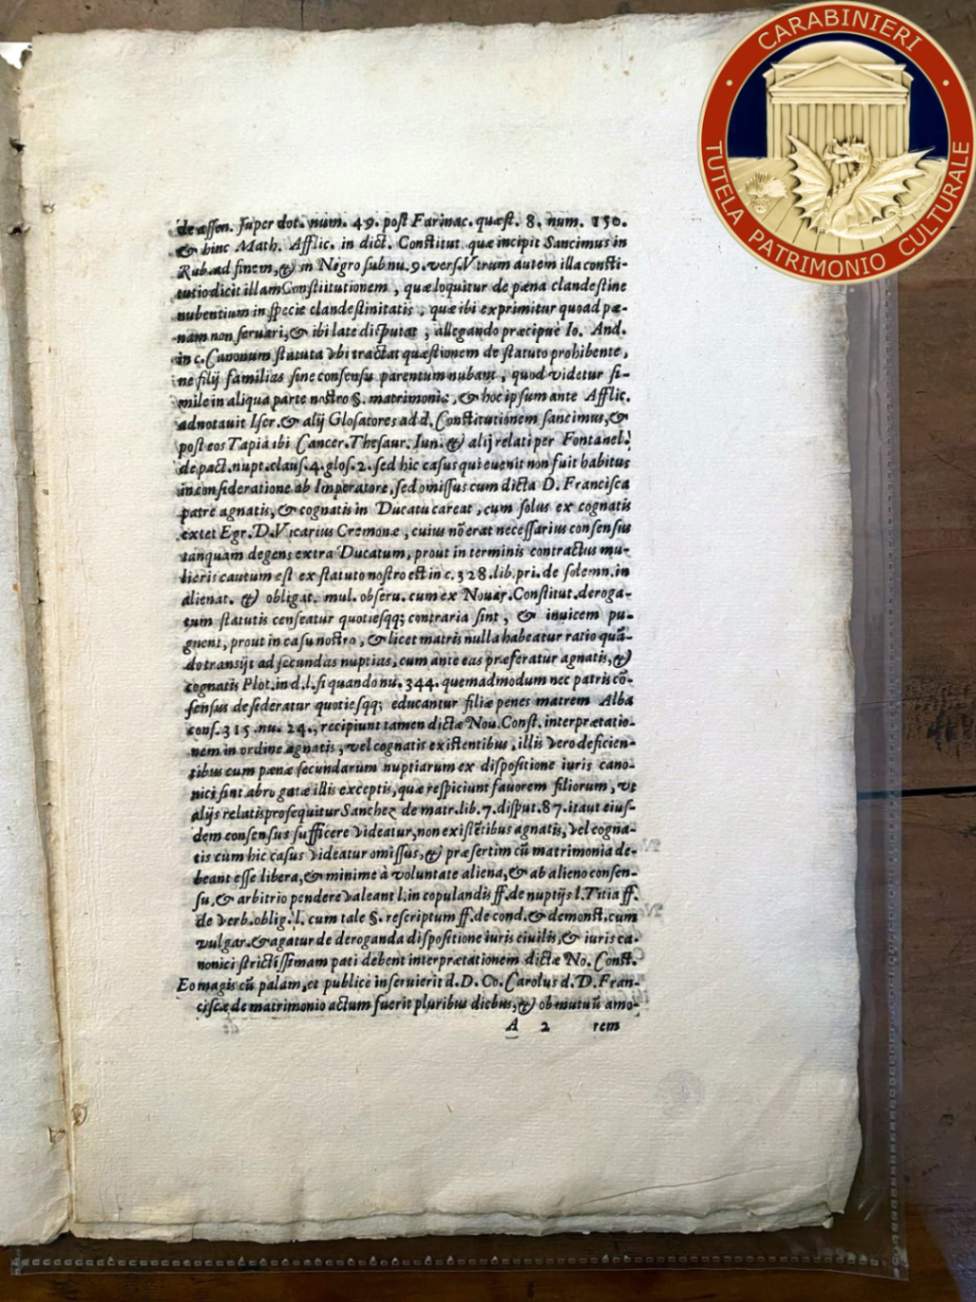 CARABINIERI
TUTELA PATRIMONIO CULTURALE
de assen. super dot. num. 49. post Farinac. quæst. 8. num. 150.
& hinc Math. Afflic. in dict. Constitut. quæ incipit Sancimus in
Rub. ad finem, & in Nigro sub nu. 9. vers. Vtrum autem illa consti-
tutio dicit illam Constiitutionem, quæ loquitur de pæna clandestine
nubentium in specie clandestinitatis, quæ ibi exprimitur quoad pæ-
nam non seruari, & ibi late disputat, allegando præcipuè Io. And.
in c. Canonum statuta vbi tractat quæstionem de statuto prohibente,
ne filij familias sine consensu parentum nubant, quod videtur si-
mile in aliqua parte nostro §. matrimonia, & hoc ipsum ante Afflic.
adnotauit Iser. & alij Glosatores ad d. Constitutionem sancimus, &
post eos Tapia ibi Cancer. Thesaur. Iun. & alij relati per Fontanel.
de pact. nupt. claus. 4. glos. 2. sed hic casus qui euenit non fuit habitus
in consideratione ab Imperatore, sed omissus cum dicta D. Francisca
patre agnatis, & cognatis in Ducatu careat, cum solus ex cognatis
extet Egr. D. Vicarius Cremonæ, cuius nõ erat necessarius consensus
tanquam degens extra Ducatum, prout in terminis contractus mu-
lieris cautum est ex statuto nostro est in c. 328. lib. pri. de solemn. in
alienat. & obligat. mul. obseru. cum ex Nouar. Constitut. deroga-
tum statutis censeatur quotiesqq; contraria sint, & inuicem pu-
gnent, prout in casu nostro, & licet matris nulla habeatur ratio quã-
do transijt ad secundas nuptias, cum ante eas præferatur agnatis, &
cognatis Plot. in d. l. si quando nu. 344. quemadmodum nec patris cõ-
sensus desideratur quotiesqq; educantur filiæ penes matrem Alba
cons. 315. nu. 24., recipiunt tamen dictæ Nou. Const. interprætatio-
nem in ordine agnatis, vel cognatis existentibus, illis vero deficien-
tibus cum pænæ secundarum nuptiarum ex dispositione iuris cano-
nici sint abrogatæ illis exceptis, quæ respiciunt fauorem filiorum, vt
alijs relatis prosequitur Sanchez de matr. lib. 7. disput. 87. ita ut eius-
dem consensus sufficere videatur, non existẽtibus agnatis, vel cogna-
tis cum hic casus videatur omissus, & præsertim cũ matrimonia de-
beant esse libera, & minime à voluntate aliena, & ab alieno consen-
su, & arbitrio pendere valeant l. in copulandis ff. de nuptijs l. Titia ff.
de verb. oblig. l. cum tale §. rescriptum ff. de cond. & demonst. cum
vulgar. & agatur de deroganda dispositione iuris ciuilis, & iuris ca-
nonici strictissimam pati debent interprætationem dictæ No. Const.
Eo magis cũ palam, et publicè inseruierit d. D. Co. Carolus d. D. Fran-
ciscæ de matrimonio actum fuerit pluribus diebus, & ob mutuũ amo-
A 2 rem